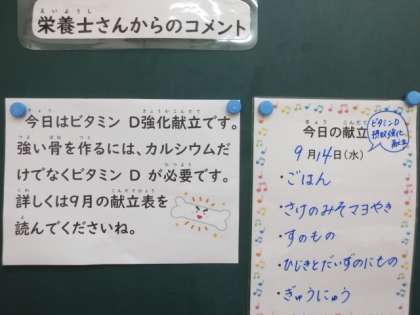 栄養士さんからのコメント
今日はビタミン D強化献立です。
強い骨を作るには、カルシウムだ
けでなくビタミン D が必要です。
詳しくは9月の献立表を
読んでくださいね。
今日の献立
ビタミンD
摂取強化
献立
9月14日(水)
・ごはん
・さけのみそマヨやき
・すのもの
・ひじきとだいずのにもの
・ぎゅうにゅう